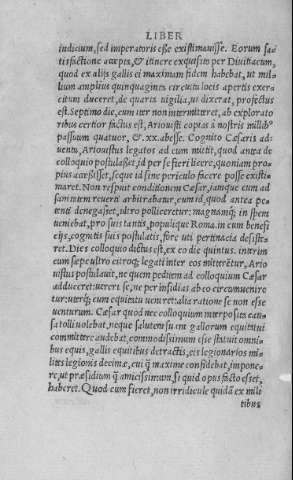 LIBER
indicium, sed imperatoris esse existimauisse. Eorum sa-
tisfactione accepta, & itinere exquisito per Diuitiacum,
quod ex alijs gallis ei maximam fidem habebat, ut mil-
lium amplius quinquaginta circuitu locis apertis exer-
citum duceret, de quarta uigilia, ut dixerat, profectus
est. Septimo die, cum iter non intermitteret, ab explorato
ribus certior factus est, Ariouisti copias à nostris millib.
passuum quatuor, & xx. abesse. Cognito Cæsaris ad
uentu, Ariouistus legatos ad eum mittit, quod antea de
colloquio postulasset, id per se fieri licere, quoniam pro-
pius accessisset, seque id sine periculo facere posse existi-
maret. Non respuit conditionem Cæsar, iamque eum ad
sanitatem reuerti arbitrabatur, cum id, quod antea pe-
tenti denegasset, ultro polliceretur: magnamq; in spem
ueniebat, pro suis tantis, populique Roma. in eum benefi
cijs, cognitis suis postulatis, fore uti pertinacia desiste-
ret. Dies colloquio dictus est, ex eo die quintus. interim
cum sæpe ultro citroq; legati inter eos mitterētur, Ario
uistus postulauit, ne quem peditem ad colloquium Cæsar
adduceret: uereri se, ne per insidias ab eo circumuenire
tur: uterq; cum equitatu ueniret: alia ratione se non esse
uenturum. Cæsar quod nec colloquium interposita cau-
sa tolli uolebat, neque salutem suam gallorum equitatui
committere audebat, commodissimum esse statuit omni-
bus equis, gallis equitibus detractis, eis legionarios mi-
lites legionis decimæ, cui q̃ maxime confidebat, impone-
re, ut præsidium q̃ amicissimum, si quid opus facto esset,
haberet. Quod cum fieret, non irridicule quidā ex mili
tibus